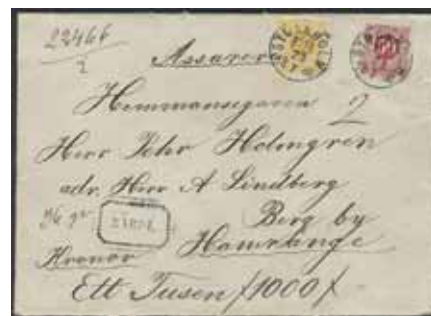 22466
Assurer
Hemmansegaren
Herr Pehr Holmgren
adr. Herr A Lindberg
Berg by
Hamrånge
Kronor
Ett Tusen /1000/